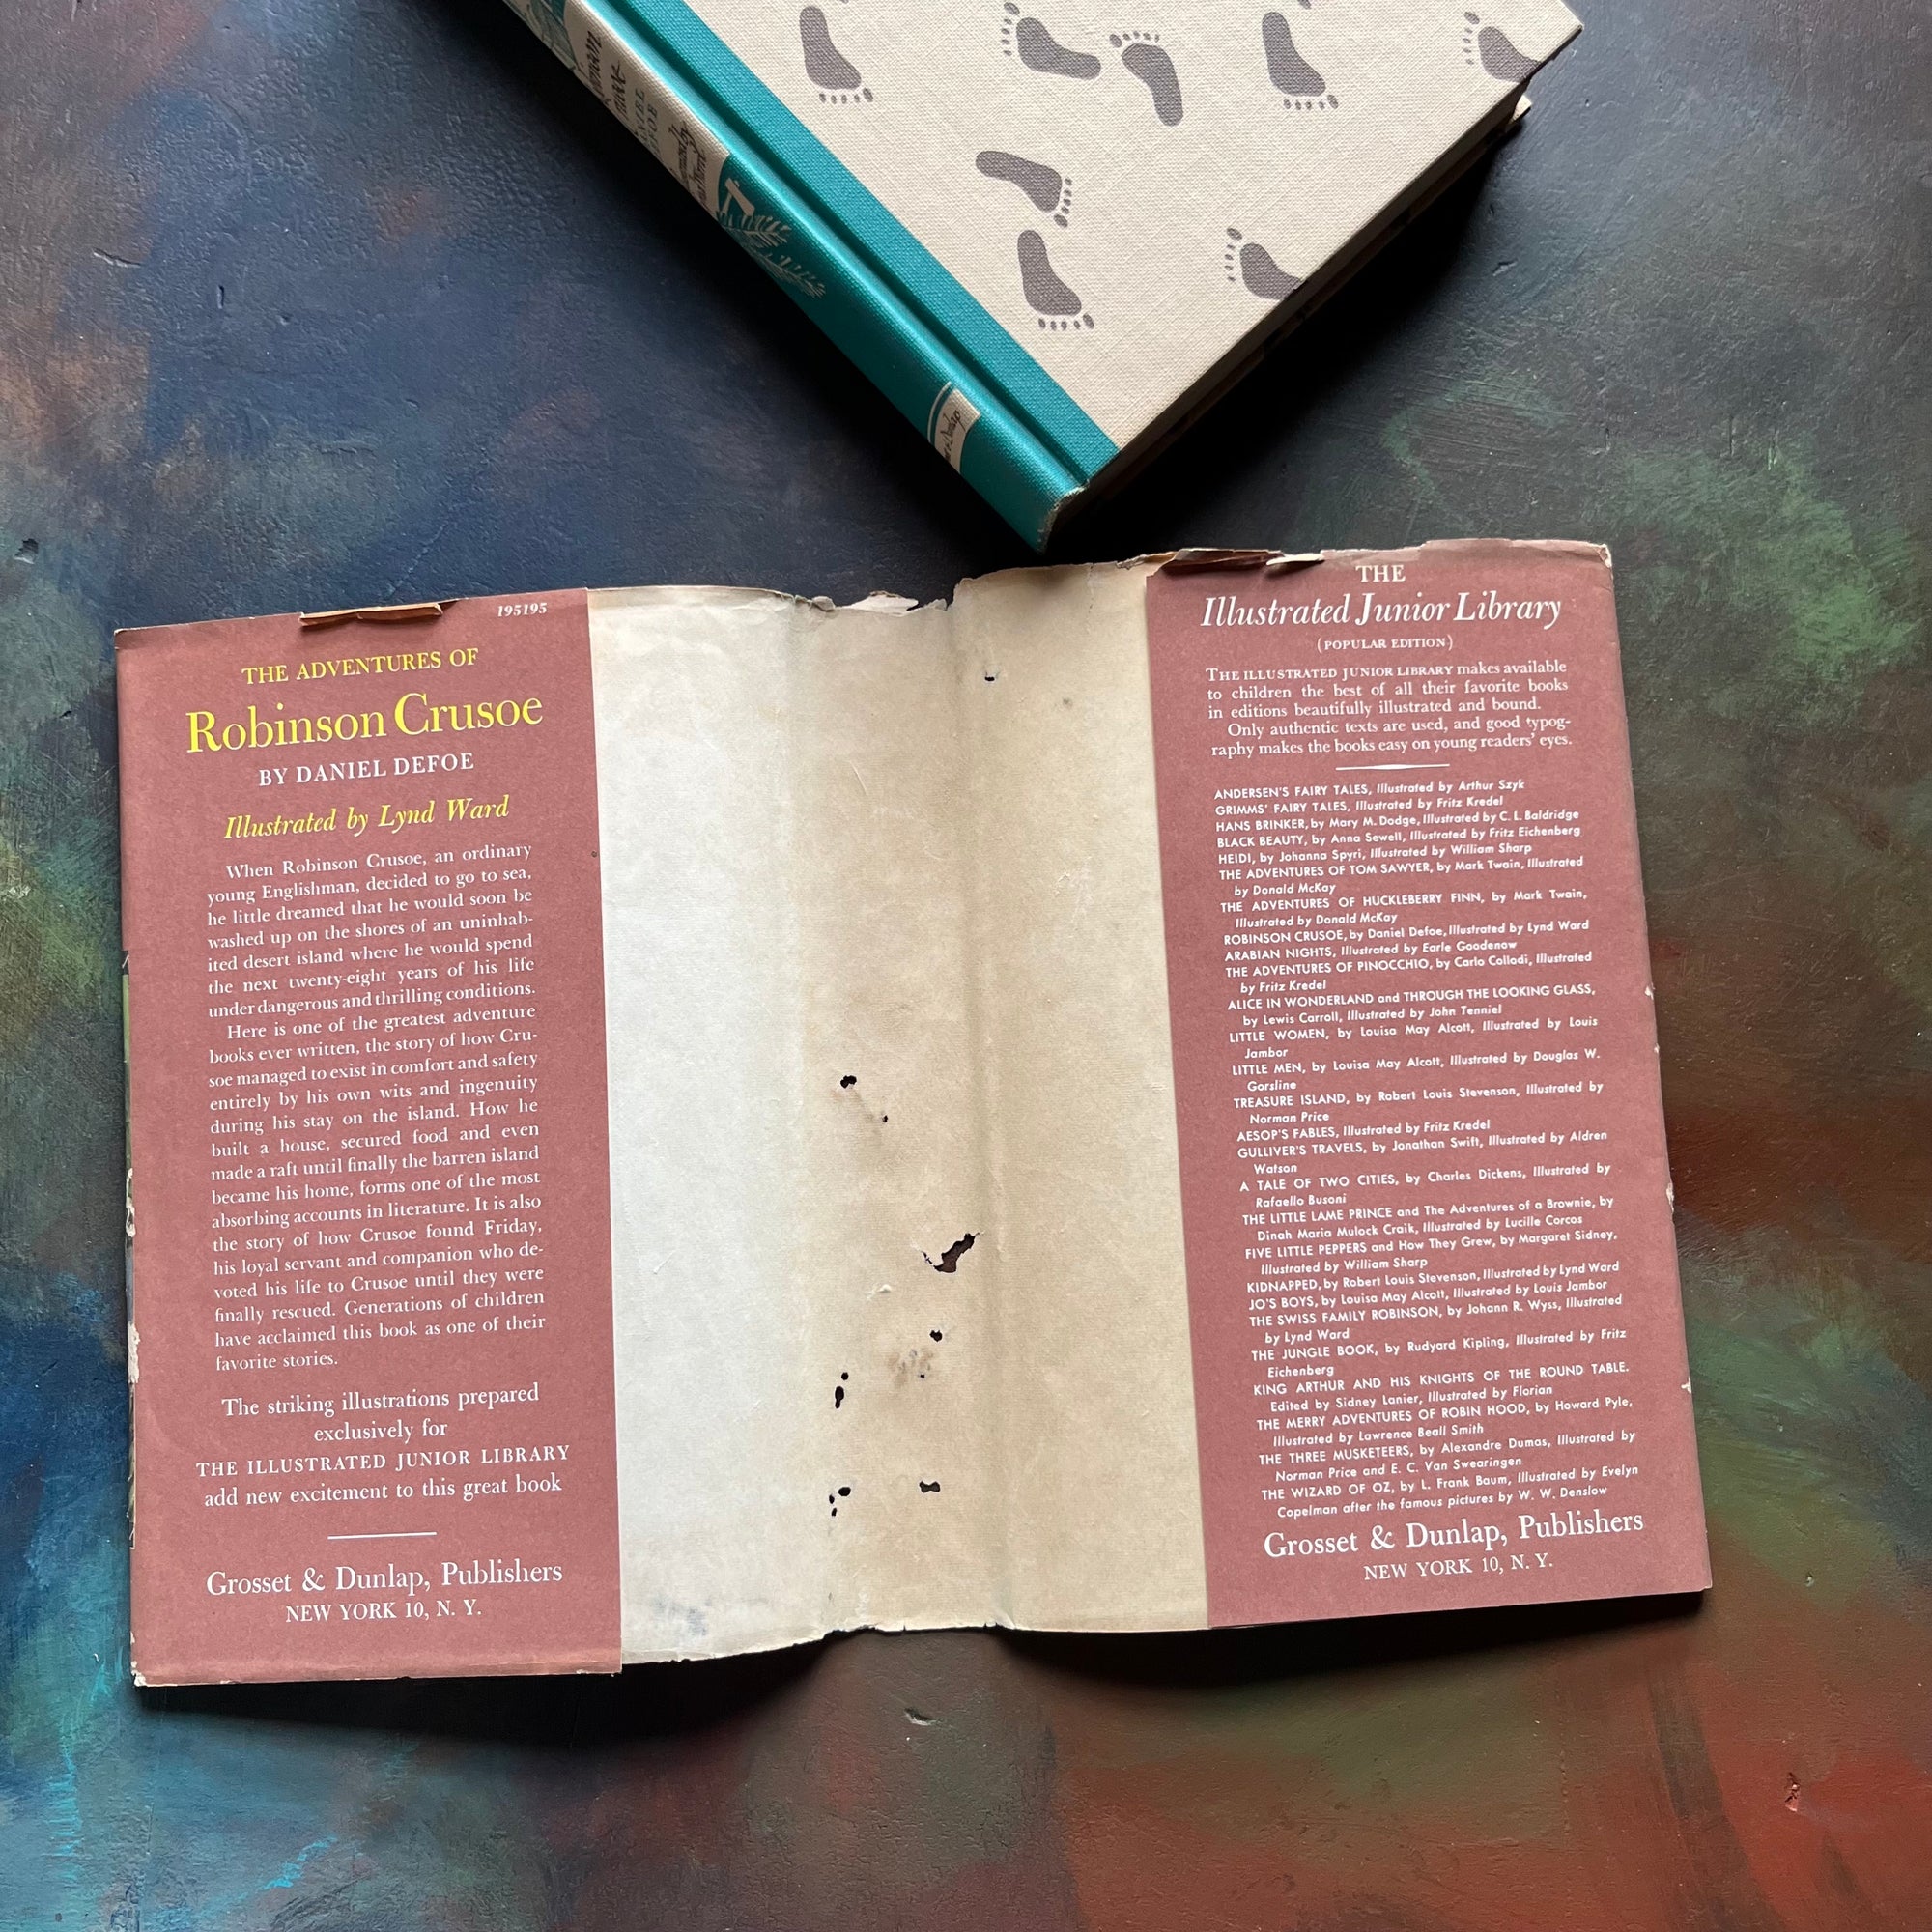 DANIEL
DEFOE
195195
THE ADVENTURES OF
Robinson Crusoe
BY DANIEL DEFOE
Illustrated by Lynd Ward
When Robinson Crusoe, an ordinary
young Englishman, decided to go to sea,
he little dreamed that he would soon be
washed up on the shores of an uninhab-
ited desert island where he would spend
the next twenty-eight years of his life
under dangerous and thrilling conditions.
Here is one of the greatest adventure
books ever written, the story of how Cru-
soe managed to exist in comfort and safety
entirely by his own wits and ingenuity
during his stay on the island. How he
built a house, secured food and even
made a raft until finally the barren island
became his home, forms one of the most
absorbing accounts in literature. It is also
the story of how Crusoe found Friday,
his loyal servant and companion who de-
voted his life to Crusoe until they were
finally rescued. Generations of children
have acclaimed this book as one of their
favorite stories.
The striking illustrations prepared
exclusively for
THE ILLUSTRATED JUNIOR LIBRARY
add new excitement to this great book
Grosset & Dunlap, Publishers
NEW YORK 10, N. Y.
THE
Illustrated Junior Library
(POPULAR EDITION)
THE ILLUSTRATED JUNIOR LIBRARY makes available
to children the best of all their favorite books
in editions beautifully illustrated and bound.
Only authentic texts are used, and good typog-
raphy makes the books easy on young readers' eyes.
ANDERSEN'S FAIRY TALES, Illustrated by Arthur Szyk
GRIMMS' FAIRY TALES, Illustrated by Fritz Kredel
HANS BRINKER, by Mary M. Dodge, Illustrated by C. L. Baldridge
BLACK BEAUTY, by Anna Sewell, Illustrated by Fritz Eichenberg
HEIDI, by Johanna Spyri, Illustrated by William Sharp
THE ADVENTURES OF TOM SAWYER, by Mark Twain, Illustrated
by Donald McKay
THE ADVENTURES OF HUCKLEBERRY FINN, by Mark Twain,
Illustrated by Donald McKay
ROBINSON CRUSOE, by Daniel Defoe, Illustrated by Lynd Ward
ARABIAN NIGHTS, Illustrated by Earle Goodenow
THE ADVENTURES OF PINOCCHIO, by Carlo Collodi, Illustrated
by Fritz Kredel
ALICE IN WONDERLAND and THROUGH THE LOOKING GLASS,
by Lewis Carroll, Illustrated by John Tenniel
LITTLE WOMEN, by Louisa May Alcott, Illustrated by Louis
Jambor
LITTLE MEN, by Louisa May Alcott, Illustrated by Douglas W.
Gorsline
TREASURE ISLAND, by Robert Louis Stevenson, Illustrated by
Norman Price
AESOP'S FABLES, Illustrated by Fritz Kredel
GULLIVER'S TRAVELS, by Jonathan Swift, Illustrated by Aldren
Watson
A TALE OF TWO CITIES, by Charles Dickens, Illustrated by
Rafaello Busoni
THE LITTLE LAME PRINCE and The Adventures of a Brownie, by
Dinah Maria Mulock Craik, Illustrated by Lucille Corcos
FIVE LITTLE PEPPERS and How They Grew, by Margaret Sidney,
Illustrated by William Sharp
KIDNAPPED, by Robert Louis Stevenson, Illustrated by Lynd Ward
JO'S BOYS, by Louisa May Alcott, Illustrated by Louis Jambor
THE SWISS FAMILY ROBINSON, by Johann R. Wyss, Illustrated
by Lynd Ward
THE JUNGLE BOOK, by Rudyard Kipling, Illustrated by Fritz
Eichenberg
KING ARTHUR AND HIS KNIGHTS OF THE ROUND TABLE.
Edited by Sidney Lanier, Illustrated by Florian
THE MERRY ADVENTURES OF ROBIN HOOD, by Howard Pyle,
Illustrated by Lawrence Beall Smith
THE THREE MUSKETEERS, by Alexandre Dumas, Illustrated by
Norman Price and E. C. Van Swearingen
THE WIZARD OF OZ, by L. Frank Baum, Illustrated by Evelyn
Copelman after the famous pictures by W. W. Denslow
Grosset & Dunlap, Publishers
NEW YORK 10, N. Y.